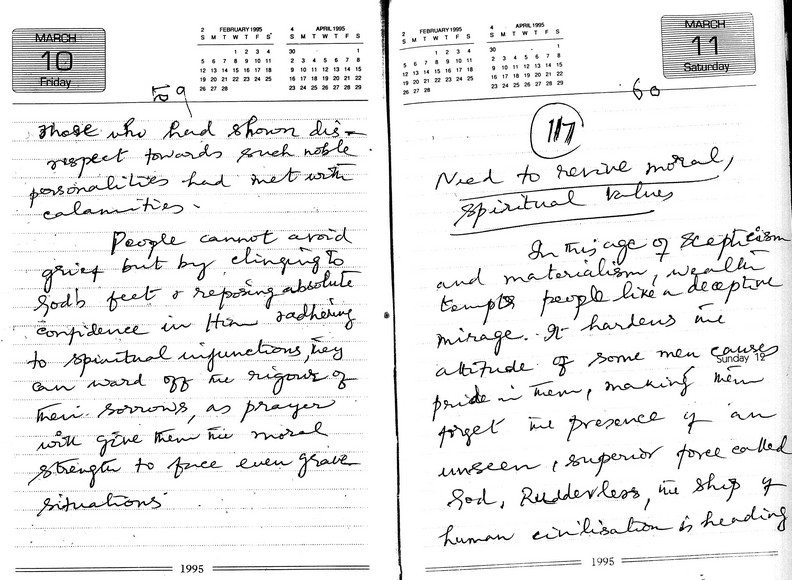 MARCH
10
Friday
2 FEBRUARY 1995
S M T W T F S
1 2 3 4
5 6 7 8 9 10 11
12 13 14 15 16 17 18
19 20 21 22 23 24 25
26 27 28
4 APRIL 1995
S M T W T F S
30 1
2 3 4 5 6 7 8
9 10 11 12 13 14 15
16 17 18 19 20 21 22
23 24 25 26 27 28 29
59
Those who had shown dis-
respect towards such noble
personalities had met with
calamities.
People cannot avoid
grief but by clinging to
God's feet & reposing absolute
confidence in Him & adhering
to spiritual injunctions, they
can ward off the rigours of
their sorrows, as prayer
will give them the moral
strength to face even grave
situations
1995
2 FEBRUARY 1995
S M T W T F S
1 2 3 4
5 6 7 8 9 10 11
12 13 14 15 16 17 18
19 20 21 22 23 24 25
26 27 28
4 APRIL 1995
S M T W T F S
30 1
2 3 4 5 6 7 8
9 10 11 12 13 14 15
16 17 18 19 20 21 22
23 24 25 26 27 28 29
MARCH
11
Saturday
60
117
Need to revive moral,
spiritual values
In this age of scepticism
and materialism, wealth
tempts people like a deceptive
mirage. It hardens the
attitude of some men causes
Sunday 12
pride in them, making them
forget the presence of an
unseen, superior force called
God. Rudderless, the ship of
human civilisation is heading
1995